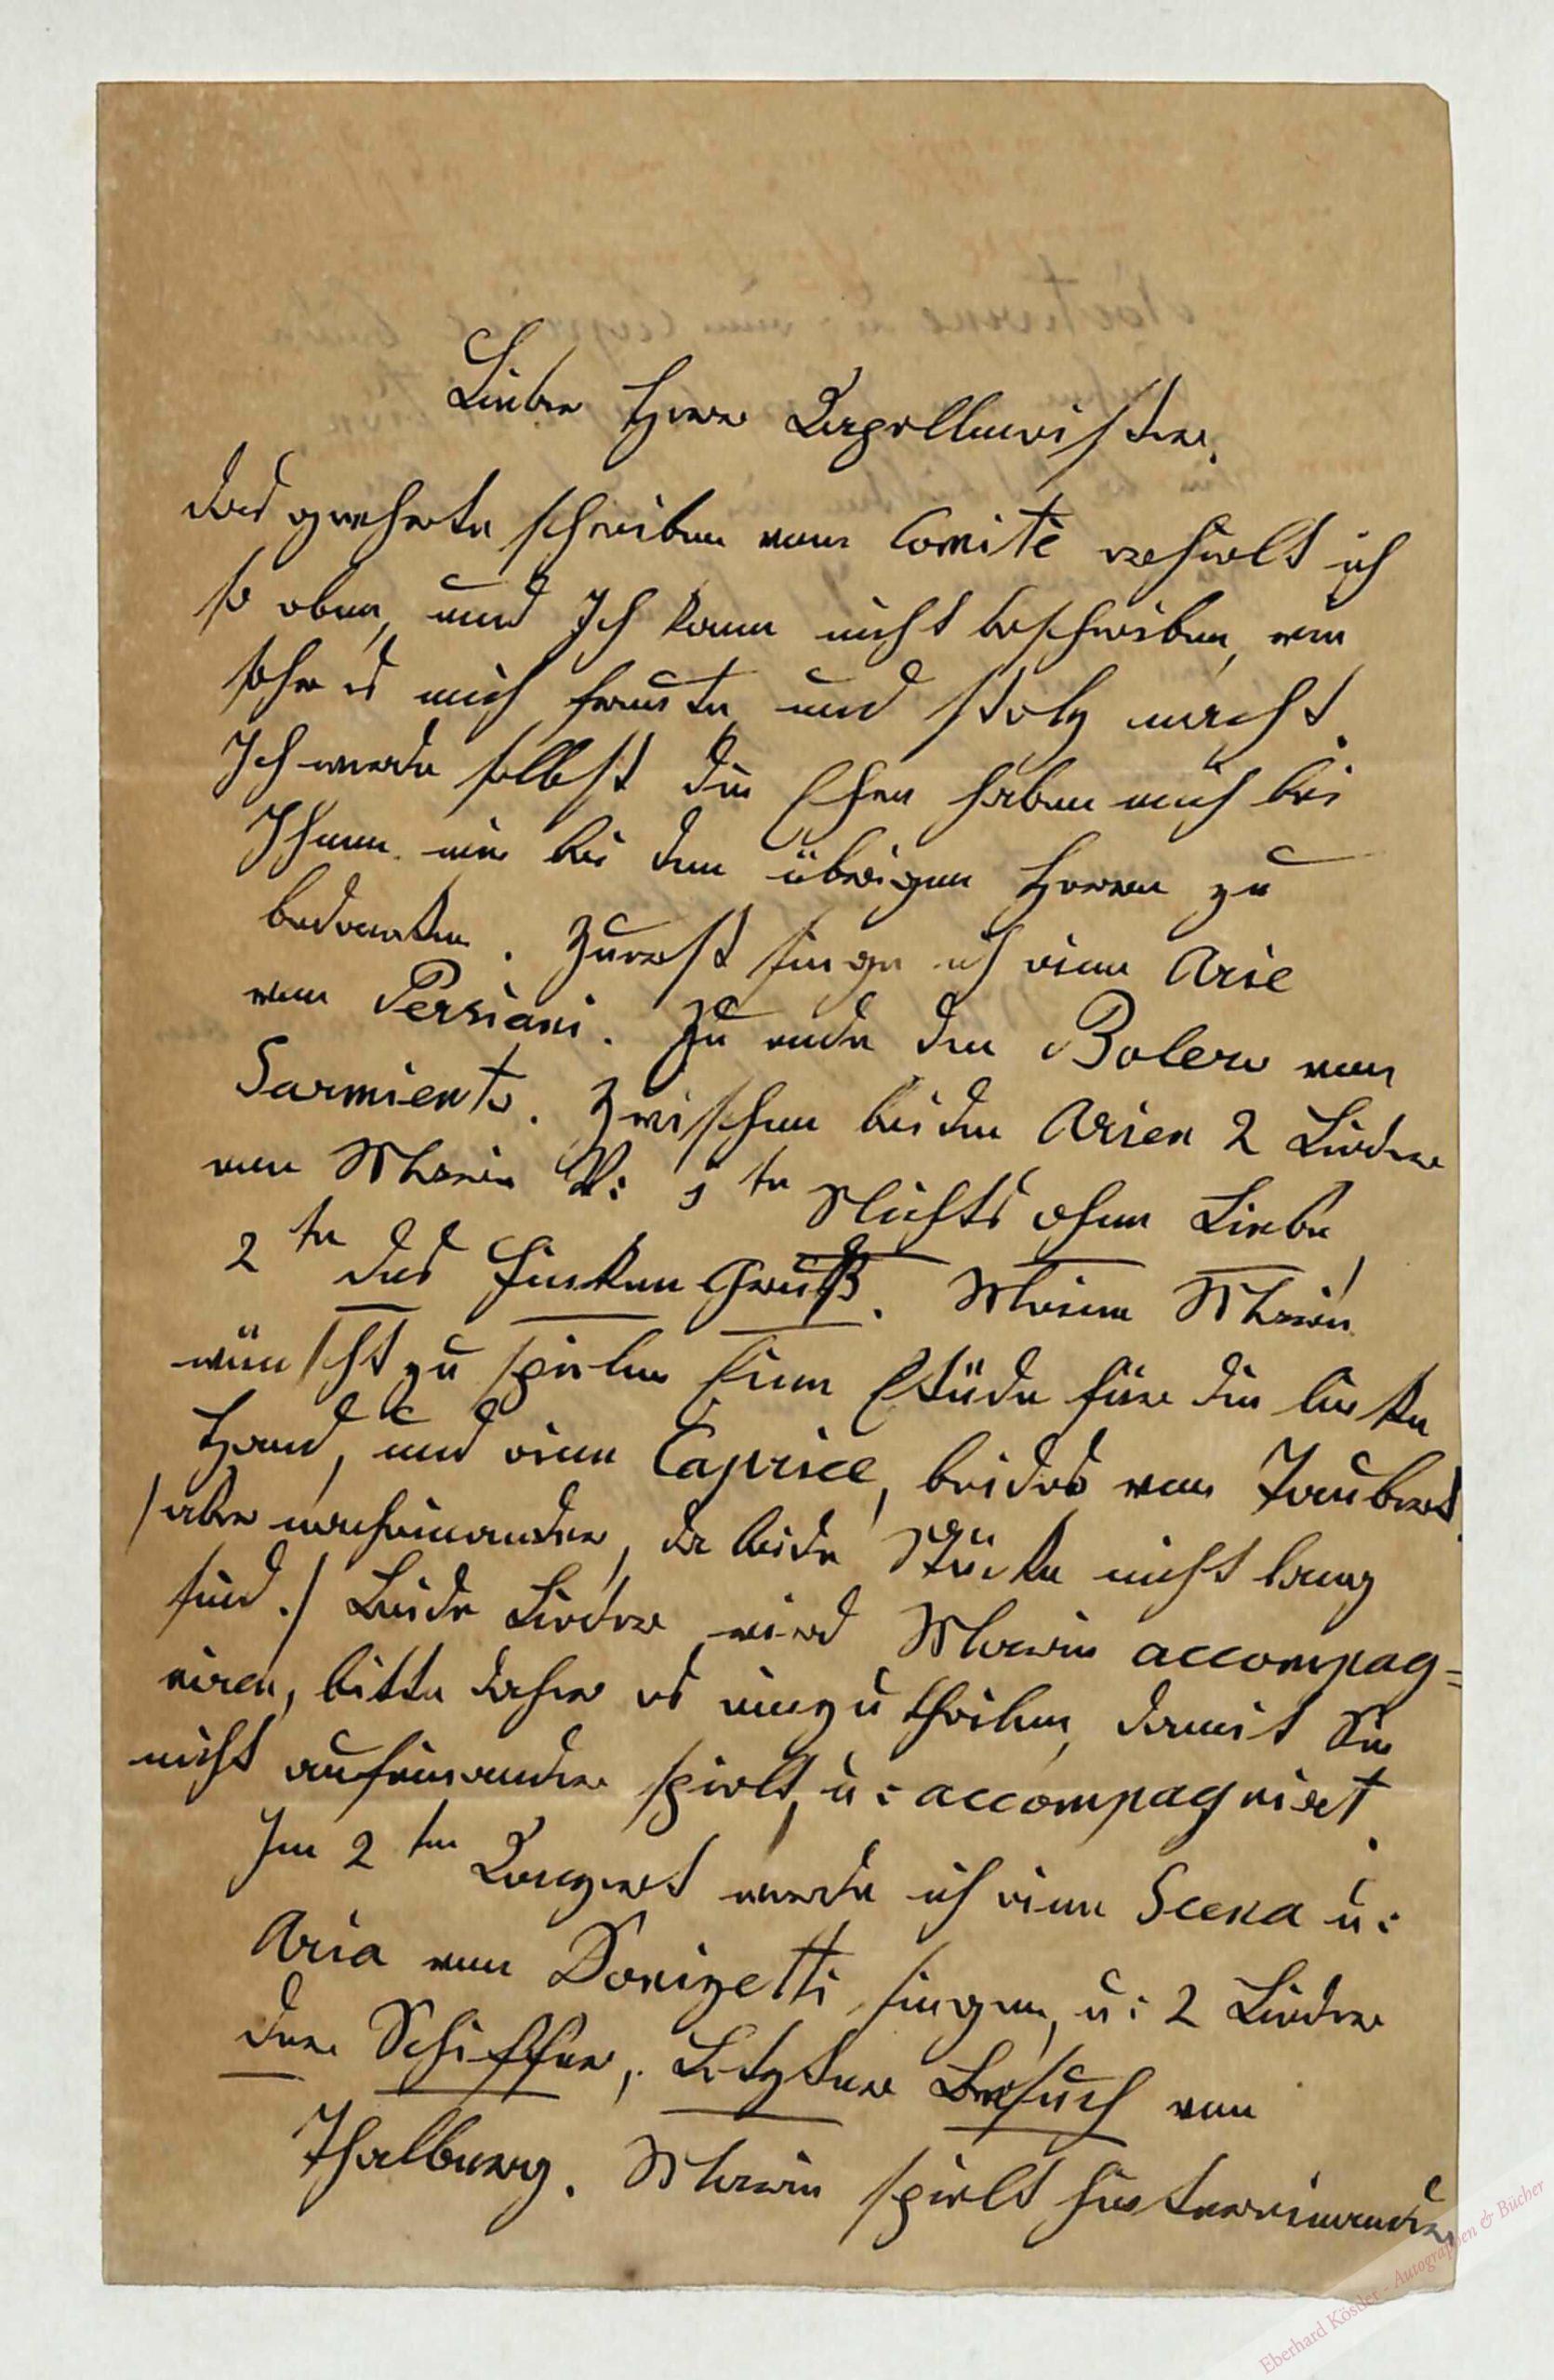 Lieber Herr Kapellmeister.
das geehrte schreiben vom Comité erhielt ich
so eben, und Ich kann nicht beschreiben, wie
sehr es mich freute und stolz macht.
Ich werde selbst die Ehre haben mich bei
Ihnen wie bei den übrigen Herren zu
bedanken. Zuerst singe ich eine Arie
von Persiani. Zu ende den Bolero von
Sarmiento. Zwischen beiden Arien 2 Lieder
von Marie 1te Nichts ohne Liebe,
2te des Finken Gruß. Meine Marie
wünscht zu spielen Eine Etüde für die linke
Hand, und eine Caprice, beides von Taubert
/ aber nacheinander, da beide Stücke nicht lang
sind. / Beide Lieder wird Marie accompag=
niren, bitte daher es einzutheilen, damit Sie
nicht aufeinander spielt, u: accompagnirt.
Im 2ten Konzert werde ich eine Scena u:
Aria von Donizetti singen, u: 2 Lieder
der Schiffer, Letzter Besuch von
Thalberg. Marie spielt hintereinander
Eberhard Köstler - Autographen & Bücher